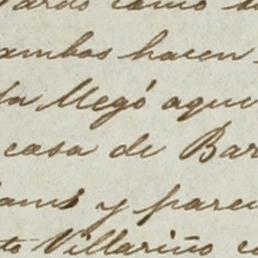 como
ambos hacen
llegó aque
casa de Bar
y pare
Villariño co